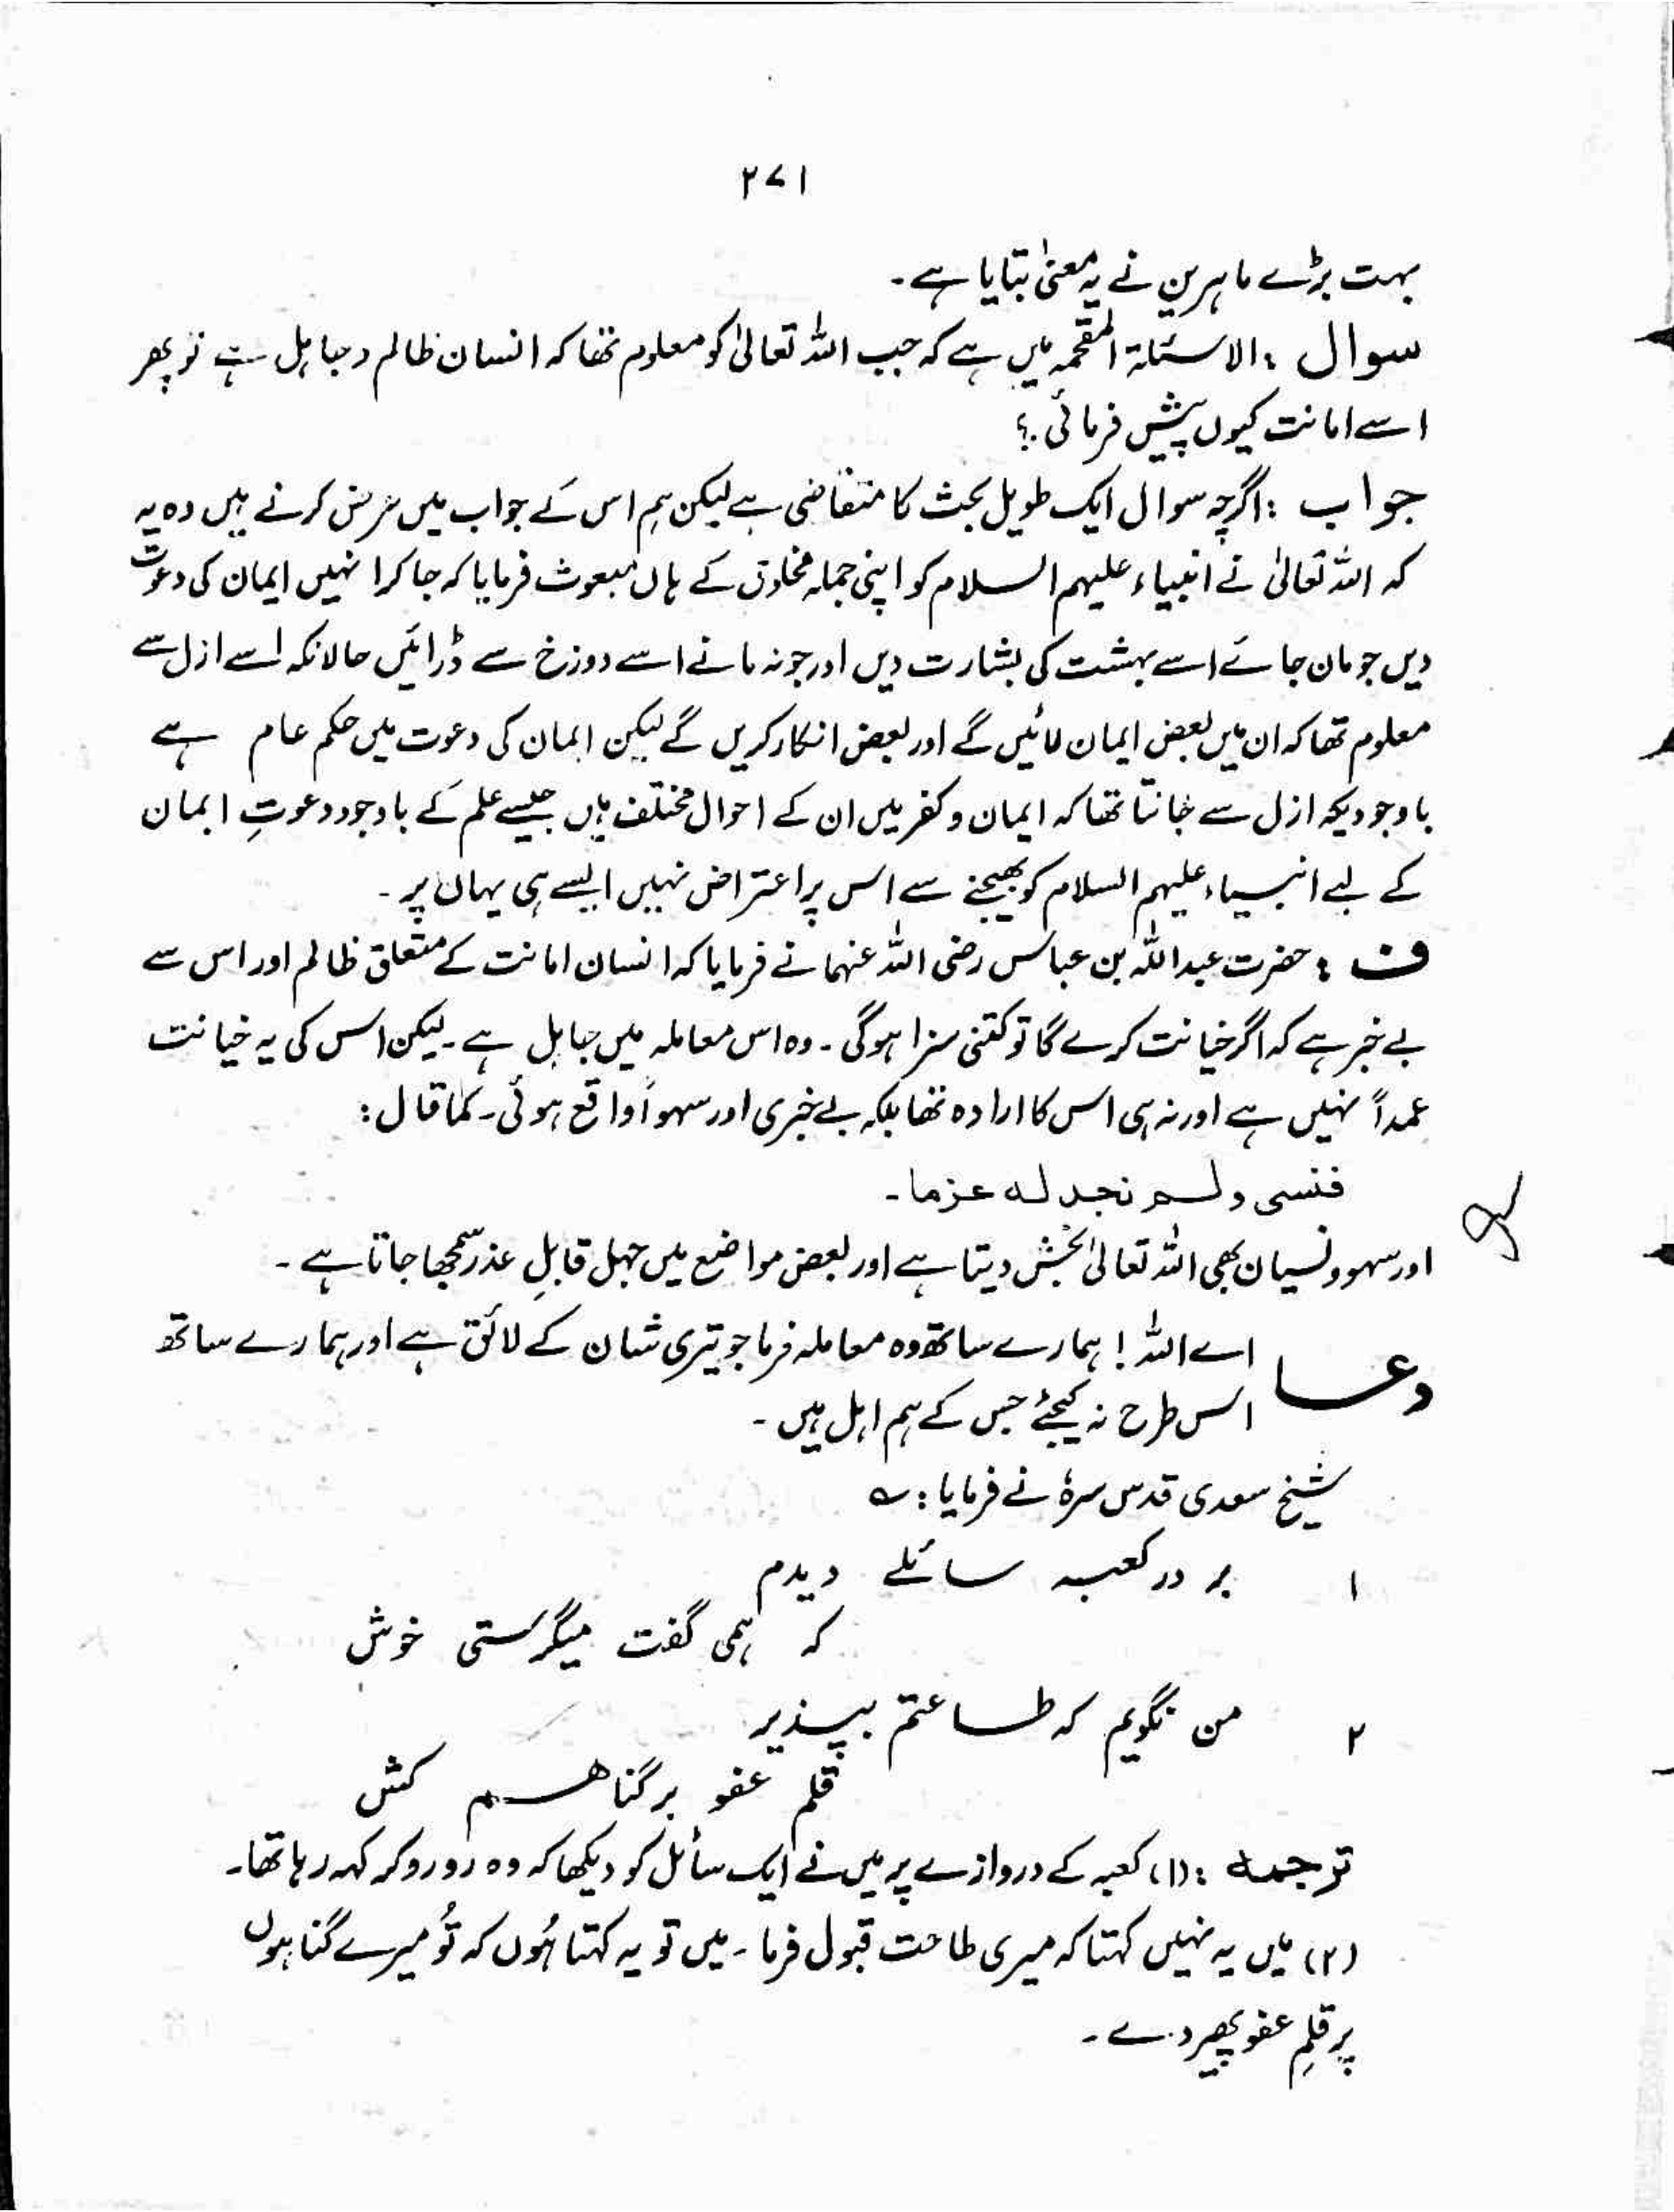 ۲۷۱
بہت بڑے ماہرین نے یہ معنیٰ بتایا ہے۔
سوال : الاسئلۃ المقحمہ میں ہے کہ جب اللہ تعالیٰ کو معلوم تھا کہ انسان ظالم و جاہل ہے تو پھر
اسے امانت کیوں پیش فرمائی ؟
جواب : اگرچہ سوال ایک طویل بحث کا متقاضی ہے لیکن ہم اس کے جواب میں عرض کرتے ہیں وہ یہ
کہ اللہ تعالیٰ نے انبیاء علیہم السلام کو اپنی جملہ مخلوق کے ہاں مبعوث فرمایا کہ جا کر انہیں ایمان کی دعوت
دیں جو مان جائے اسے بہشت کی بشارت دیں اور جو نہ مانے اسے دوزخ سے ڈرائیں حالانکہ اسے ازل سے
معلوم تھا کہ ان میں بعض ایمان لائیں گے اور بعض انکار کریں گے لیکن ایمان کی دعوت میں حکم عام ہے
باوجودیکہ ازل سے جانتا تھا کہ ایمان و کفر میں ان کے احوال مختلف ہیں جیسے علم کے باوجود دعوتِ ایمان
کے لیے انبیاء علیہم السلام کو بھیجنے سے اس پر اعتراض نہیں ایسے ہی یہاں پر ۔
ف : حضرت عبداللہ بن عباس رضی اللہ عنہما نے فرمایا کہ انسان امانت کے متعلق ظالم اور اس سے
بے خبر ہے کہ اگر خیانت کرے گا تو کتنی سزا ہوگی ۔ وہ اس معاملہ میں جاہل ہے ۔ لیکن اس کی یہ خیانت
عمداً نہیں ہے اور نہ ہی اس کا ارادہ تھا بلکہ بے خبری اور سہواً واقع ہوئی ۔ کما قال :
فنسی ولم نجد له عزما ۔
اور سہو و نسیان بھی اللہ تعالیٰ بخش دیتا ہے اور بعض مواضع میں جہل قابلِ عذر سمجھا جاتا ہے ۔
دعا اے اللہ ! ہمارے ساتھ وہ معاملہ فرما جو تیری شان کے لائق ہے اور ہمارے ساتھ
اس طرح نہ کیجئے جس کے ہم اہل ہیں ۔
شیخ سعدی قدس سرہٗ نے فرمایا : ؎
۱ بر در کعبہ سائلے دیدم
کہ ہمی گفت میگرستی خوش
۲ من نگویم کہ طاعتم بپذیر
قلم عفو بر گناهم کش
ترجمہ : (۱) کعبہ کے دروازے پر میں نے ایک سائل کو دیکھا کہ وہ رو رو کر کہہ رہا تھا ۔
(۲) میں یہ نہیں کہتا کہ میری طاعت قبول فرما ۔ میں تو یہ کہتا ہُوں کہ تُو میرے گناہوں
پر قلمِ عفو پھیر دے ۔